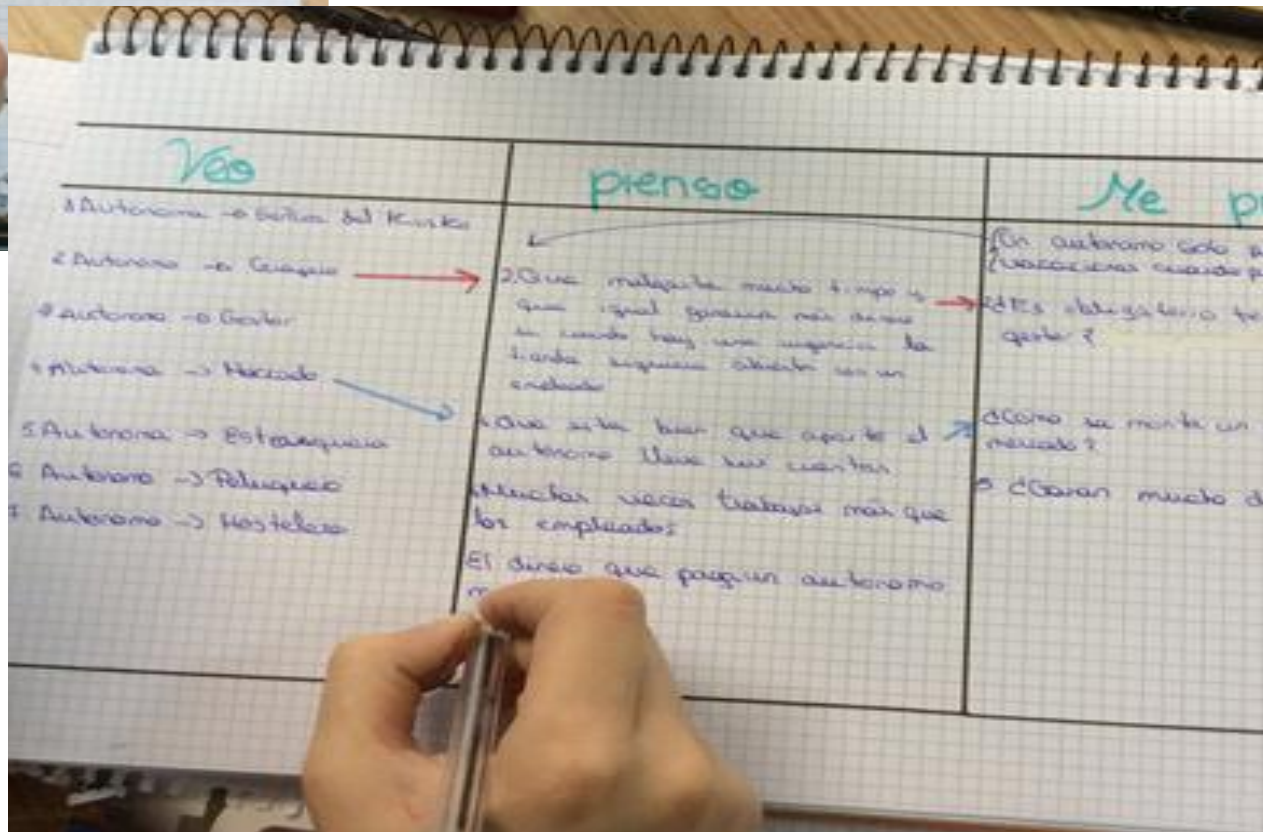 Veo
1 Autonoma → Señora del Kiosko
2 Autonomo →
3 Autonomo → Gestor
4 Autonoma → Mercado
5 Autonoma → Estanquera
6 Autonomo → Peluquero
7 Autonomo → Hostelero
pienso
2. Que mucho tiempo y
que igual más dinero
si cuando hay una urgencia la
tienda siguiera abierta con un
empleado
Que esta bien que aparte el
autonomo lleve sus cuentas.
Muchas veces trabajas más que
los empleados
El dinero que paga un autonomo
Me p
Un autonomo solo
vacaciones cuando p
¿Es obligatorio te
gestor?
¿Como se monta un
mercado?
5 ¿Ganan mucho d